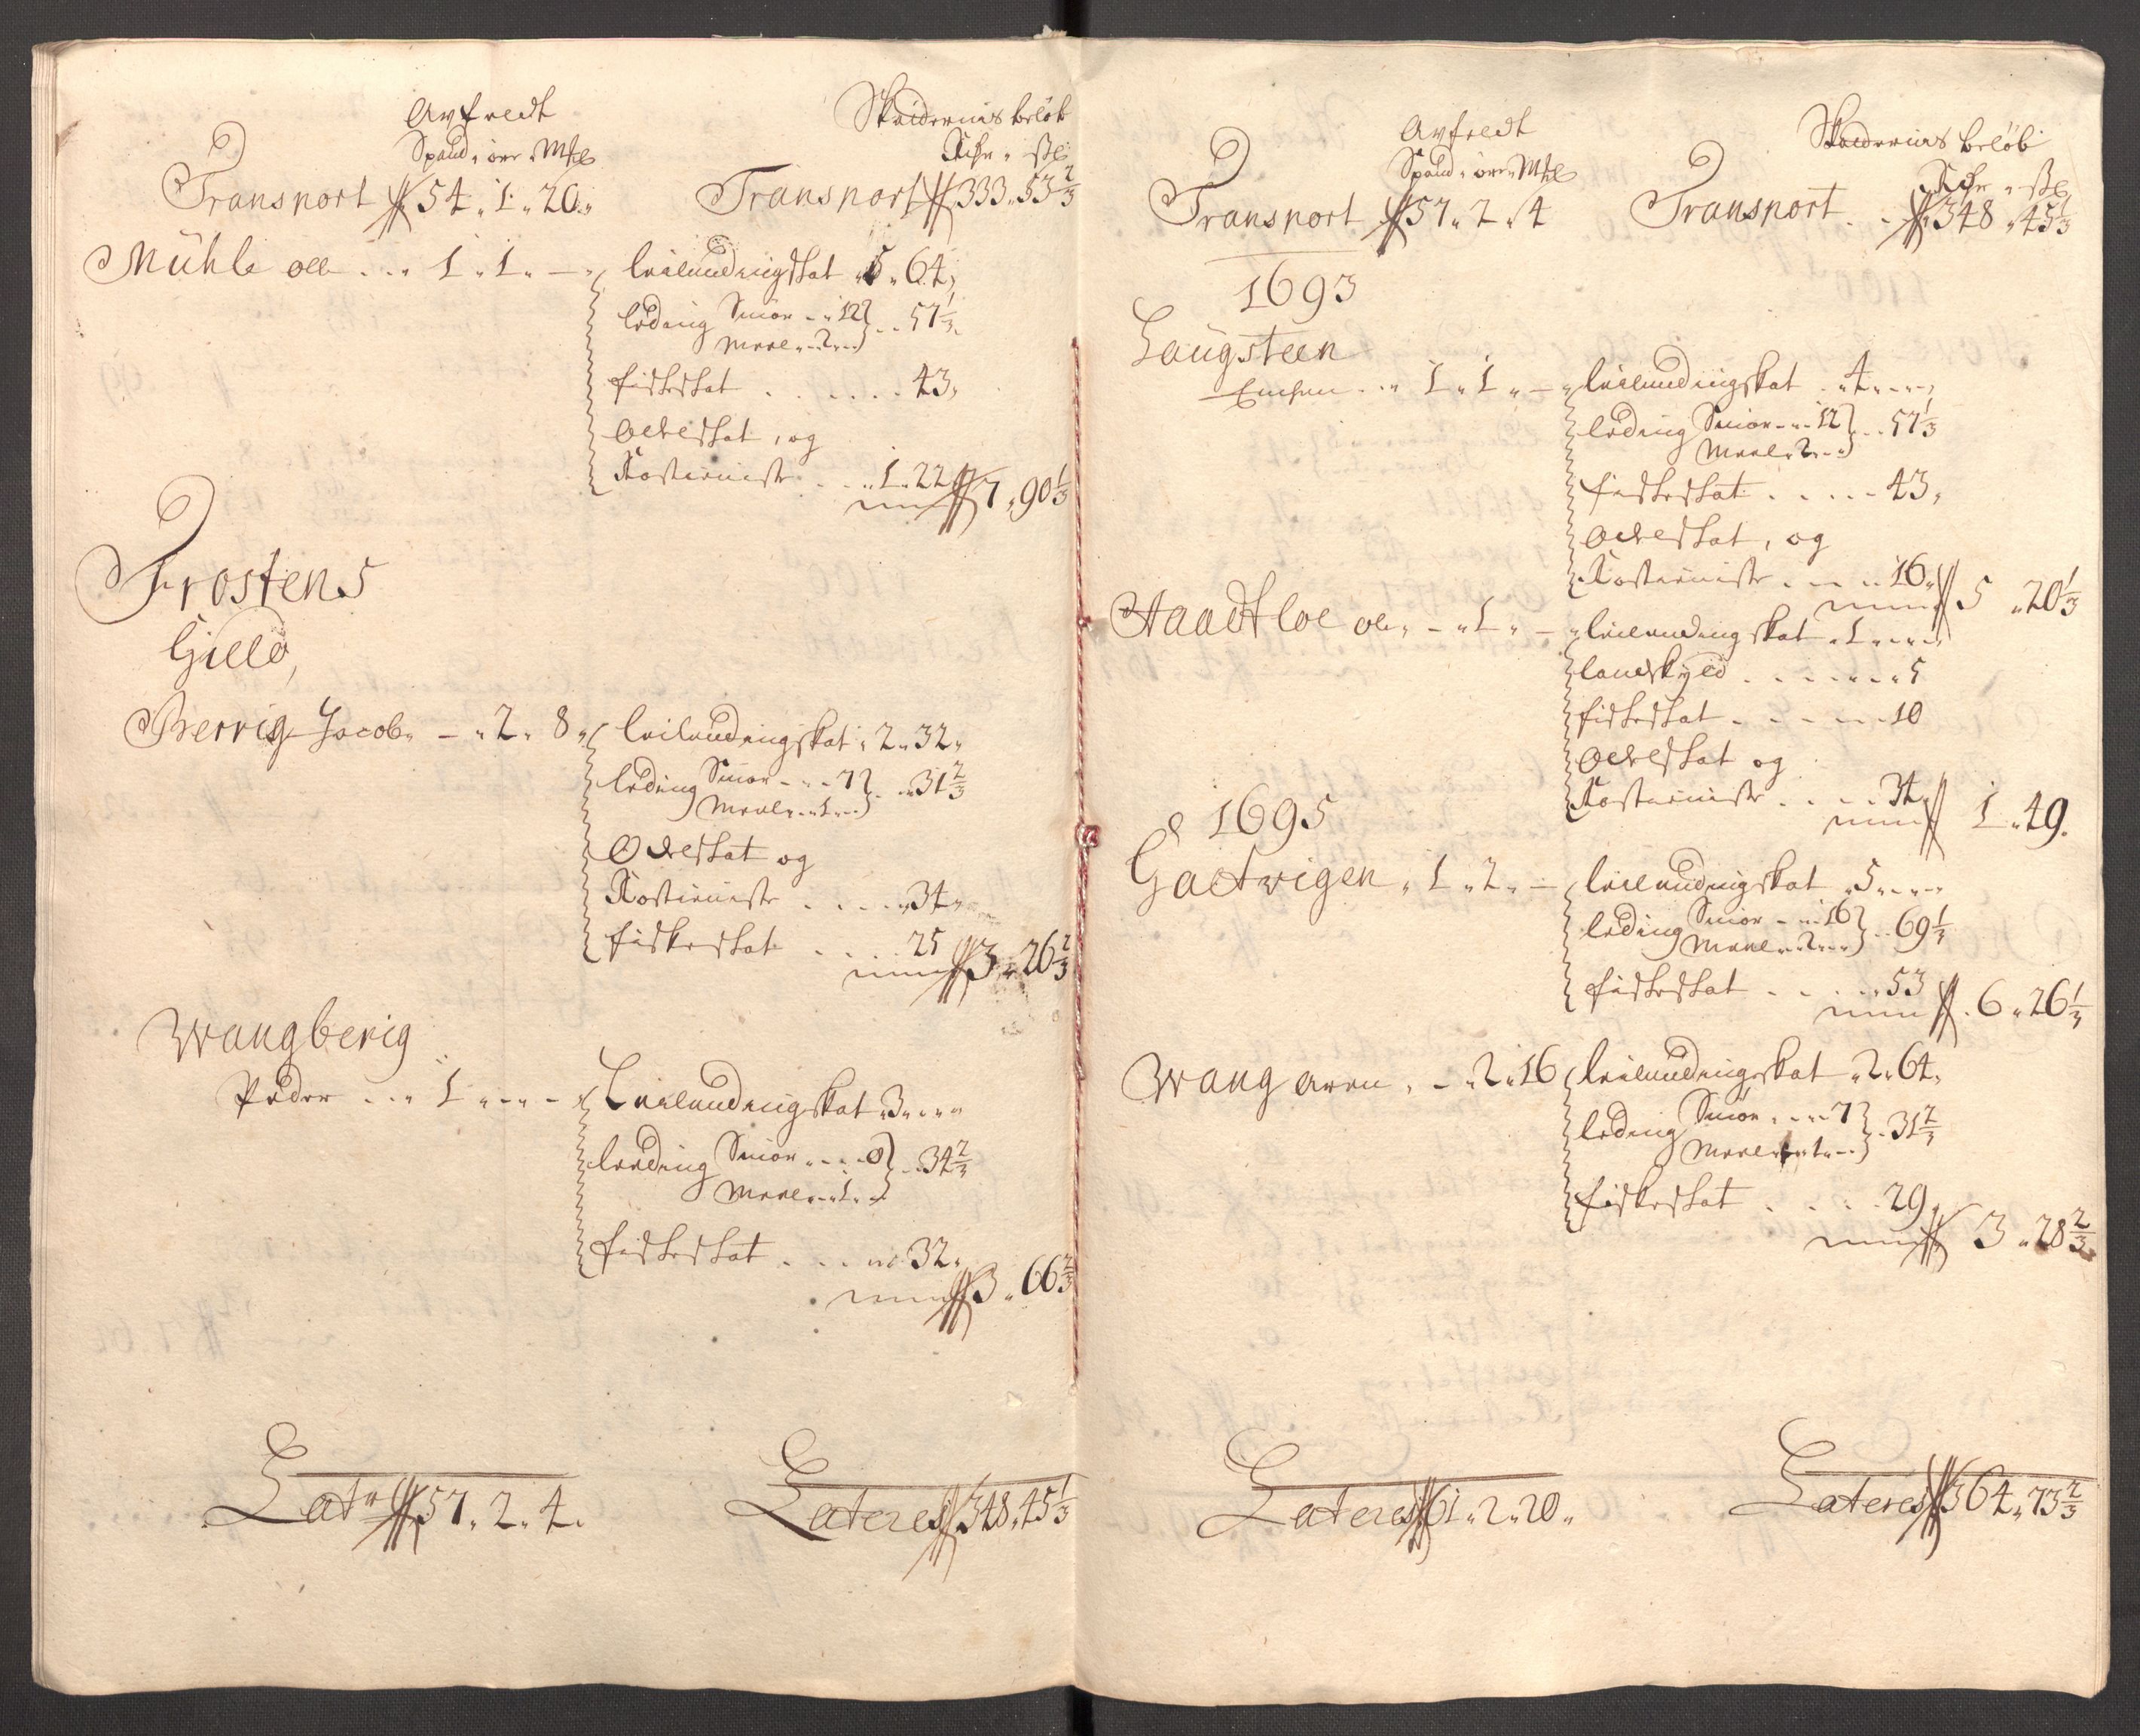 Skadernis beløb
Spand " ører " Mkl
Rdr " sk
Transport 54 " 1 " 20 " Transport 333 " 53 2/3
Mühle oll . . . 1 " 1 " —
leilendingskat " 5 " 64 "
leding Smør - " 12 } . . 57 1/3
Meel " - 2 - -
fidskeskat . . . . . . 43 "
Odelskat, og
Rostieniste . . . " 1 " 22
7 " 90 1/3
Frostens
Gield,
Berrig Jacob " - " 2 " 8 "
leilendingskat " 2 " 32 "
leding Smør - - - 7 } . . 31 2/3
Meel " - 1 - -
Odelskat og
Rostieniste . . . . " 34 "
fidskeskat . . . . 25
3 " 26 2/3
Wangberig
Peder . . . 1 " - " -
Leilendingskat " 3 " - "
leeding Smør " - - 8 } . . 34 2/3
Meel " - 1 - -
fidskeskat . . . " 32 "
3 " 66 2/3
Latr 57 " 2 " 4 " Lateres 348 " 45 1/3
Skadernis beløb
Spand " ører " Mkl
Rdr " sk
Transport 57 " 2 " 4 Transport . . 348 " 45 1/3
1693
Laugsteen
Einer . . " 1 " 1 " —
leilendingskat . " 4 " - "
leding Smør - - 12 } . . 57 1/3
Meel " 2 - -
fidskeskat . . . . - 43 "
Odelskat, og
Rostieniste . . . . 16 "
5 " 20 1/3
Haadtloe ole " - " 1 " —
leilendingskat " 1 " - "
landskyld . . . . . " 5
fidskeskat . . . . - 10
Odelskat og
Rostieniste . . . . 34
1 " 49.
1695
Gadtvigen " 1 " 2 " —
leilendingskat " 5 " - "
leding Smør - - 16 } . . 69 1/3
Meel " - 2 - -
fidskeskat . . . " 53
6 " 26 1/3
Wang aren " - " 2 " 16
leilendingskat " 2 " 64 "
leding Smør " - - 7 } . 31 2/3
Meel " - 1 - -
fidskeskat . . . . 29 "
3 " 28 2/3
Lateres 61 " 2 " 20 " Lateres 364 " 73 2/3